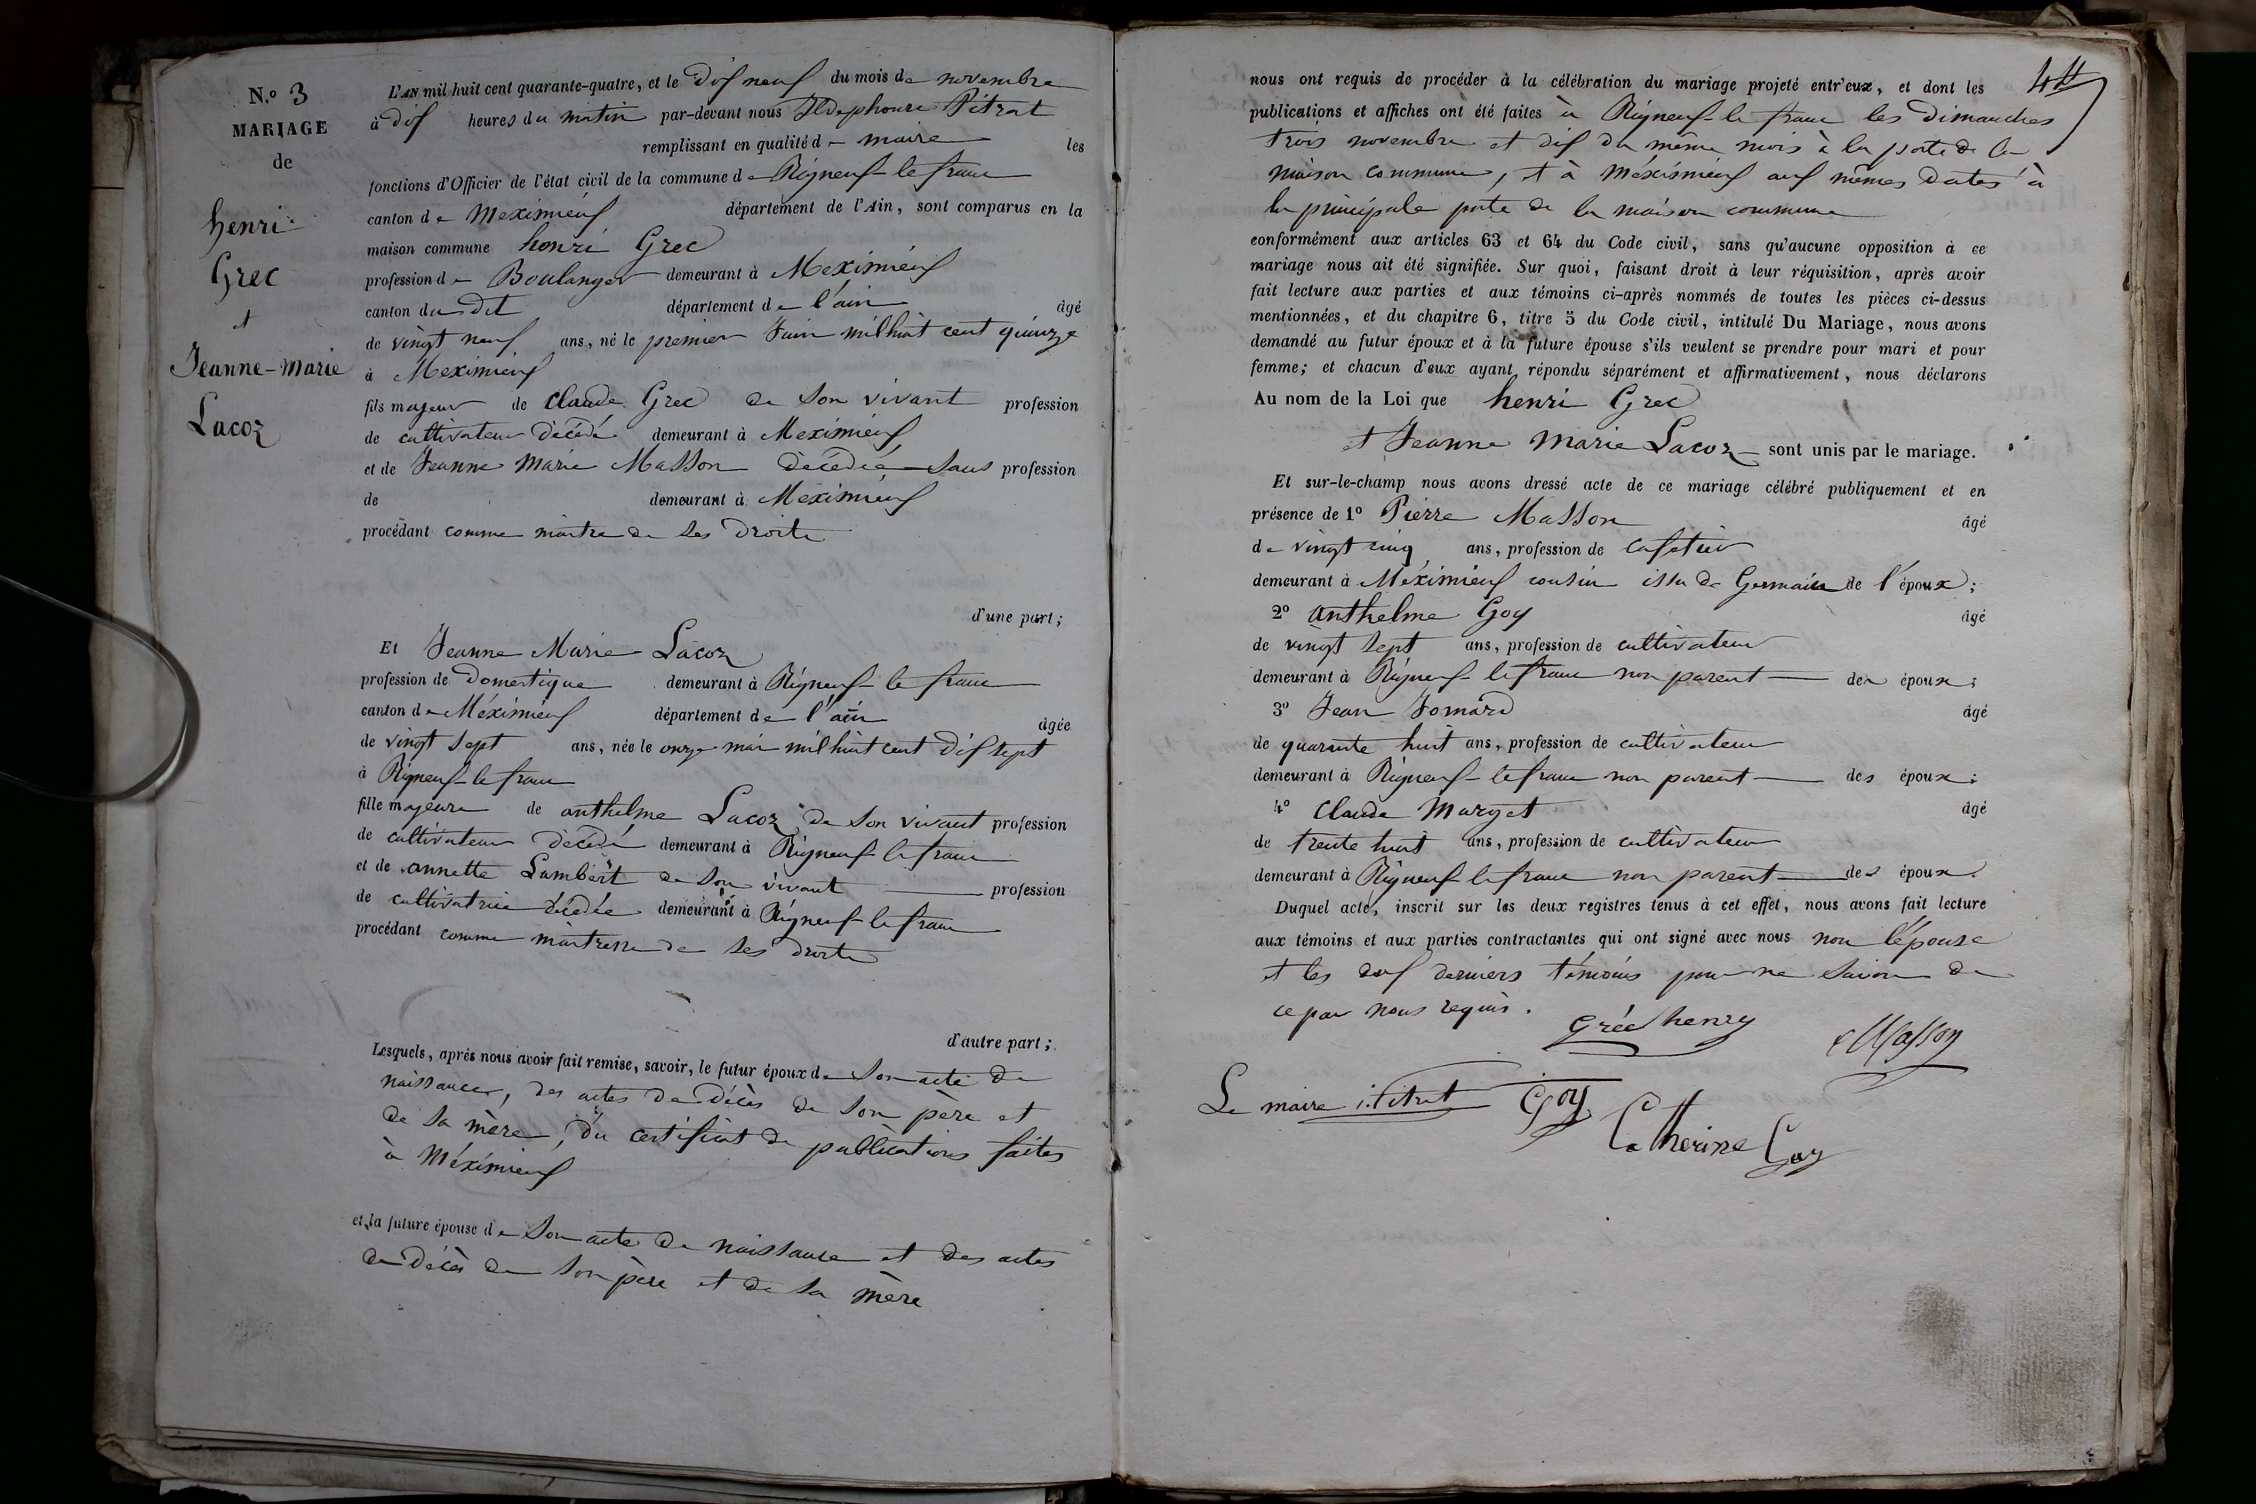 N.º 3
MARIAGE
de
henri
Grec
et
Jeanne-Marie
Lacoz
L'AN mil huit cent quarante-quatre, et le dix neuf du mois de novembre
à dix heures du matin par-devant nous Ildephonse Pitrat
remplissant en qualité de maire les
fonctions d'Officier de l'état civil de la commune de Rigneux-le franc
canton de Meximieux département de l'Ain, sont comparus en la
maison commune henri Grec
profession de Boulanger demeurant à Meximieux
canton du dit département de l'ain âgé
de vingt neuf ans, né le premier Juin mil huit cent quinze
à Meximieux
fils majeur de Claude Grec de son vivant profession
de cultivateur décédé demeurant à Meximieux
et de Jeanne Marie Masson décédée sans profession
de demeurant à Méximieux
procédant comme maitre de ses droits
d'une part;
Et Jeanne Marie Lacoz
profession de domestique demeurant à Rigneux-le franc
canton de Méximieux département de l'ain âgée
de vingt sept ans, née le onze mai mil huit cent dix sept
à Rigneux-le franc
fille majeure de anthelme Lacoz de son vivant profession
de cultivateur décédé demeurant à Rigneux le franc
et de annette Lambert de son vivant profession
de cultivatrice décédée demeurant à Rigneux le franc
procédant comme maitresse de ses droits
d'autre part;
Lesquels, après nous avoir fait remise, savoir, le futur époux de son acte de
naissance, des actes de décès de son père et
de sa mère, du certificat de publications faites
à Méximieux
et la future épouse de son acte de naissance et des actes
de décès de son père et de sa mère
44
nous ont requis de procéder à la célébration du mariage projeté entr'eux, et dont les
publications et affiches ont été faites à Rigneux-le franc les dimanches
trois novembre et dix du même mois à la porte de la
maison commune, et à Méximieux aux mêmes dates à
la principale porte de la maison commune
conformément aux articles 63 et 64 du Code civil, sans qu'aucune opposition à ce
mariage nous ait été signifiée. Sur quoi, faisant droit à leur réquisition, après avoir
fait lecture aux parties et aux témoins ci-après nommés de toutes les pièces ci-dessus
mentionnées, et du chapitre 6, titre 5 du Code civil, intitulé Du Mariage, nous avons
demandé au futur époux et à la future épouse s'ils veulent se prendre pour mari et pour
femme; et chacun d'eux ayant répondu séparément et affirmativement, nous déclarons
Au nom de la Loi que henri Grec
et Jeanne Marie Lacoz sont unis par le mariage.
Et sur-le-champ nous avons dressé acte de ce mariage célébré publiquement et en
présence de 1º Pierre Masson âgé
de vingt cinq ans, profession de cafetier
demeurant à Méximieux cousin issu de Germain de l'époux;
2º anthelme Goy âgé
de vingt sept ans, profession de cultivateur
demeurant à Rigneux le franc non parent des époux;
3º Jean Jomard âgé
de quarante huit ans, profession de cultivateur
demeurant à Rigneux le franc non parent des époux;
4º Claude Marget âgé
de trente huit ans, profession de cultivateur
demeurant à Rigneux le franc non parent des époux.
Duquel acte, inscrit sur les deux registres tenus à cet effet, nous avons fait lecture
aux témoins et aux parties contractantes qui ont signé avec nous non l'épouse
et les deux derniers témoins pour ne savoir de
ce par nous requis.
Gréc henry
Masson
Le maire i. Pitrat
Goy
Catherine Goy